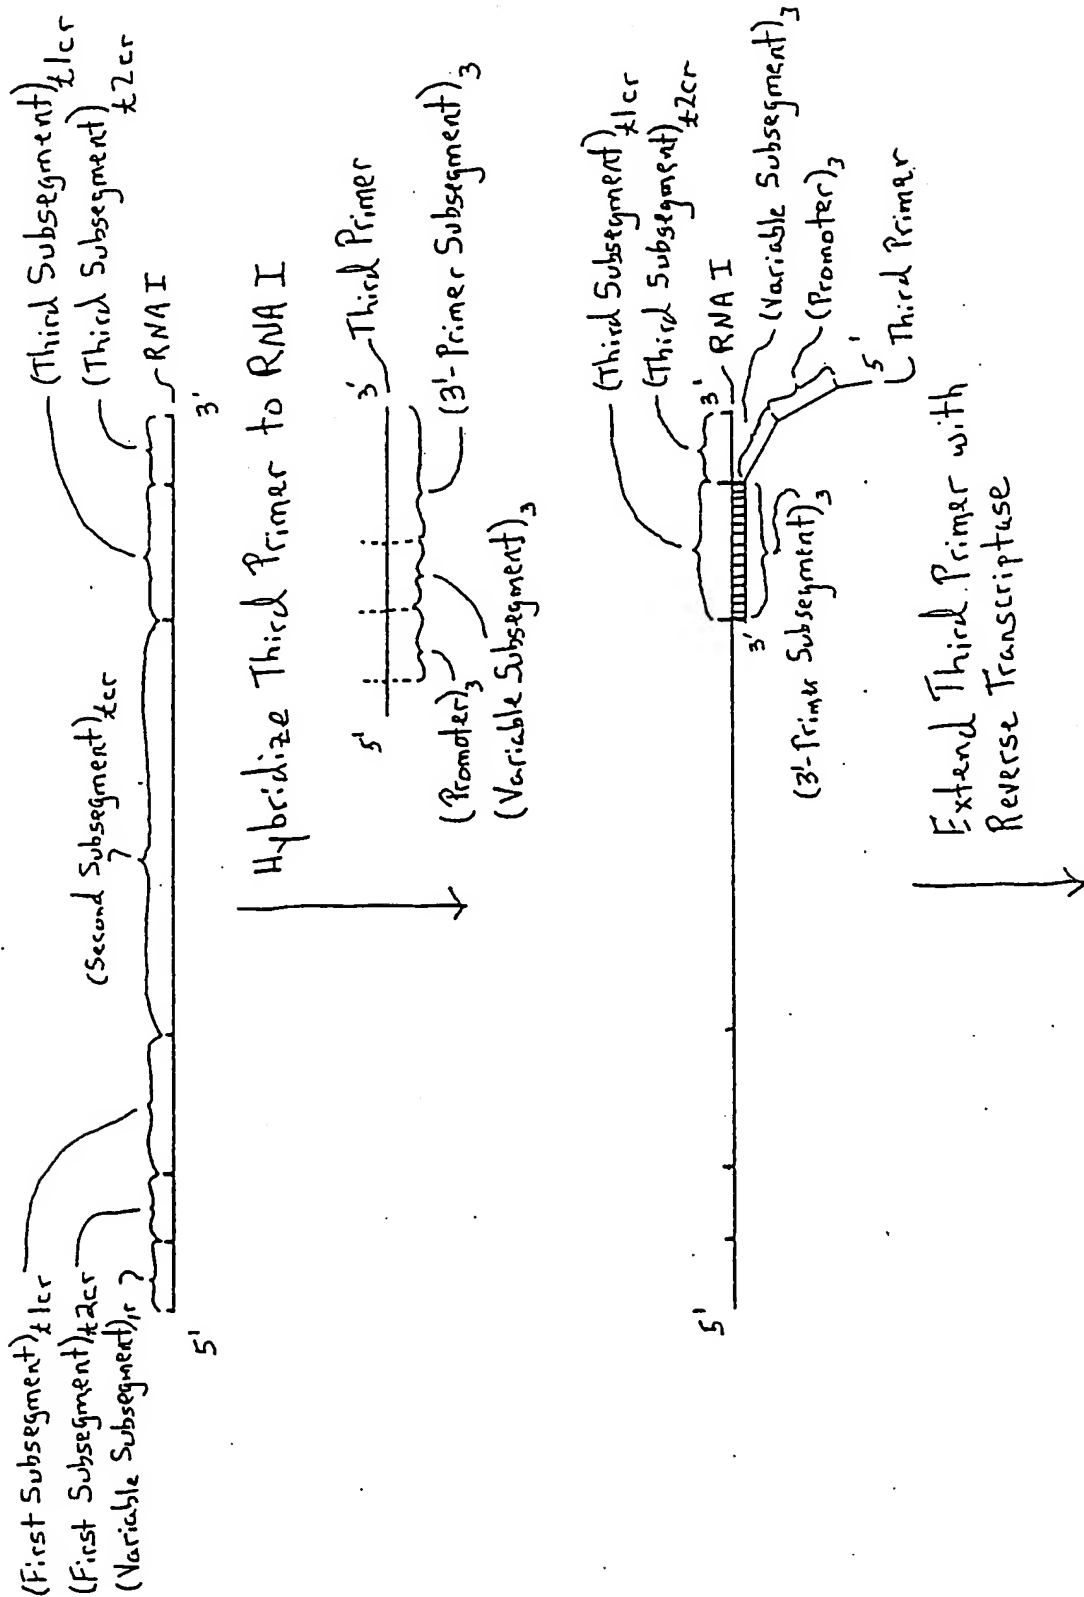 (First Subsegment)t1cr
(First Subsegment)t2cr
(Variable Subsegment)1r
(Second Subsegment)tcr
(Third Subsegment)t1cr
(Third Subsegment)t2cr
RNA I
5'
3'
Hybridize Third Primer to RNA I
5'
3'
Third Primer
(Promoter)3
(Variable Subsegment)3
(3'-Primer Subsegment)3
(Third Subsegment)t1cr
(Third Subsegment)t2cr
5'
3'
RNA I
(Variable Subsegment)3
(Promoter)3
3'
5'
Third Primer
(3'-Primer Subsegment)3
Extend Third Primer with
Reverse Transcriptase